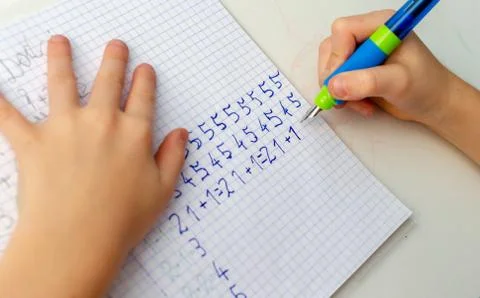 5 5 5 5 5 5 5 5
4 5 4 5 4 5 4 5 4 5
2 1+1=2 1+1=2 1+1
3
4
5